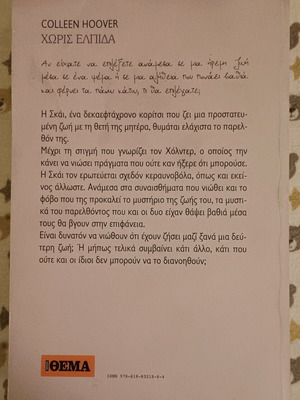 COLLEEN HOOVER
ΧΩΡΙΣ ΕΛΠΙΔΑ
Αν είχατε να επιλέξετε ανάμεσα σε μια ήρεμη ζωή
μέσα σε ένα ψέμα ή σε μια αλήθεια που πονάει βαθιά
και φέρνει τα πάνω κάτω, τι θα επιλέγατε;
Η Σκάι, ένα δεκαεφτάχρονο κορίτσι που ζει μια προστατευ-
μένη ζωή με τη θετή της μητέρα, θυμάται ελάχιστα το παρελ-
θόν της.
Μέχρι τη στιγμή που γνωρίζει τον Χόλντερ, ο οποίος την
κάνει να νιώσει πράγματα που ούτε καν ήξερε ότι μπορούσε.
Η Σκάι τον ερωτεύεται σχεδόν κεραυνοβόλα, όπως και εκεί-
νος άλλωστε. Ανάμεσα στα συναισθήματα που νιώθει και το
φόβο που της προκαλεί το μυστήριο της ζωής του, τα μυστι-
κά του παρελθόντος που και οι δυο είχαν θάψει βαθιά μέσα
τους θα βγουν στην επιφάνεια.
Είναι δυνατόν να νιώθουν ότι έχουν ζήσει μαζί ξανά μια δεύ-
τερη ζωή; Ή μήπως τελικά συμβαίνει κάτι άλλο, κάτι που
ούτε και οι ίδιοι δεν μπορούν να το διανοηθούν;
ΘΕΜΑ
ISBN